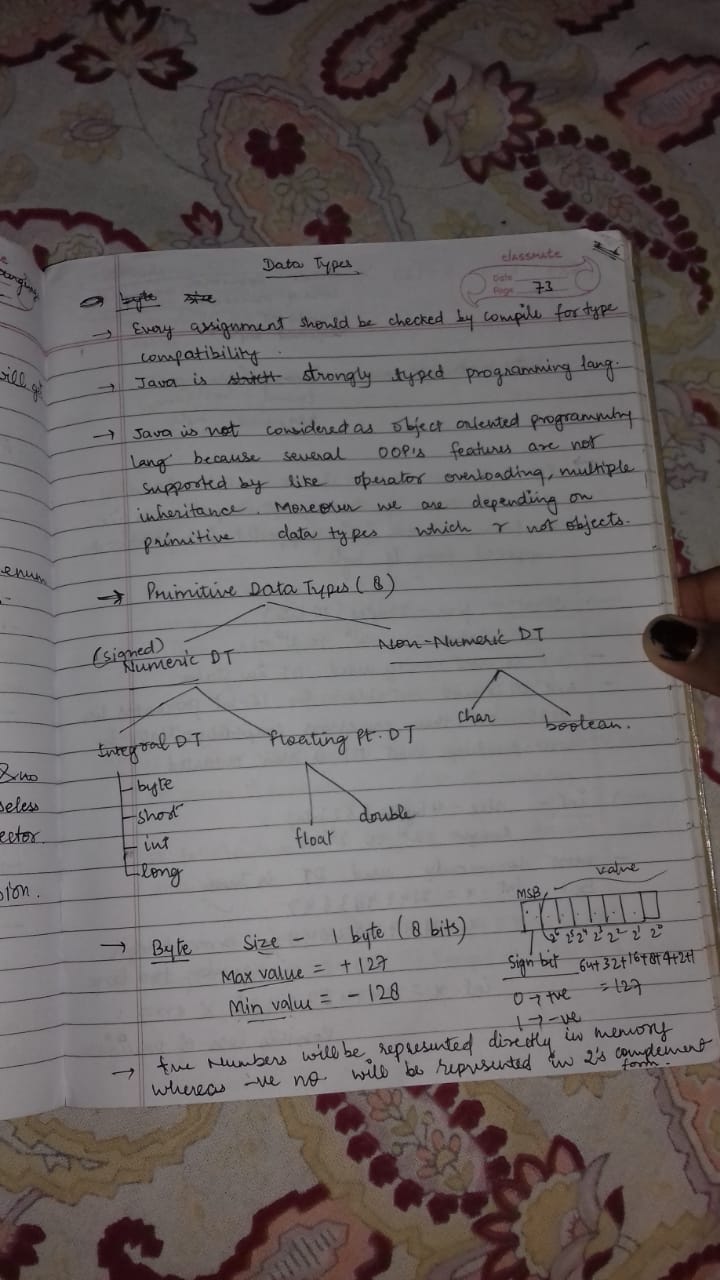 Data Types
classmate
Date
Page 73
byte size
→ Every assignment should be checked by compile for type
compatibility.
→ Java is strictt strongly typed programming lang.
→ Java is not considered as object oriented programming
lang because several OOP's features are not
supported by like operator overloading, multiple
inheritance. Moreover we are depending on
primitive data types which r not objects.
→ Primitive Data Types (8)
(signed)
Numeric DT Non-Numeric DT
char boolean.
Integral DT Floating Pt. DT
byte
short
int
long
float double
→ Byte Size - 1 byte (8 bits)
Max value = +127
Min value = -128
value
MSB
2⁶ 2⁵ 2⁴ 2³ 2² 2¹ 2⁰
Sign bit 64+32+16+8+4+2+1
= 127
0 → +ve
1 → -ve
→ +ve Numbers will be represented directly in memory
whereas -ve no will be reprsented in 2's complement
form.
will g
enum
& no
seless
ector.
sion.